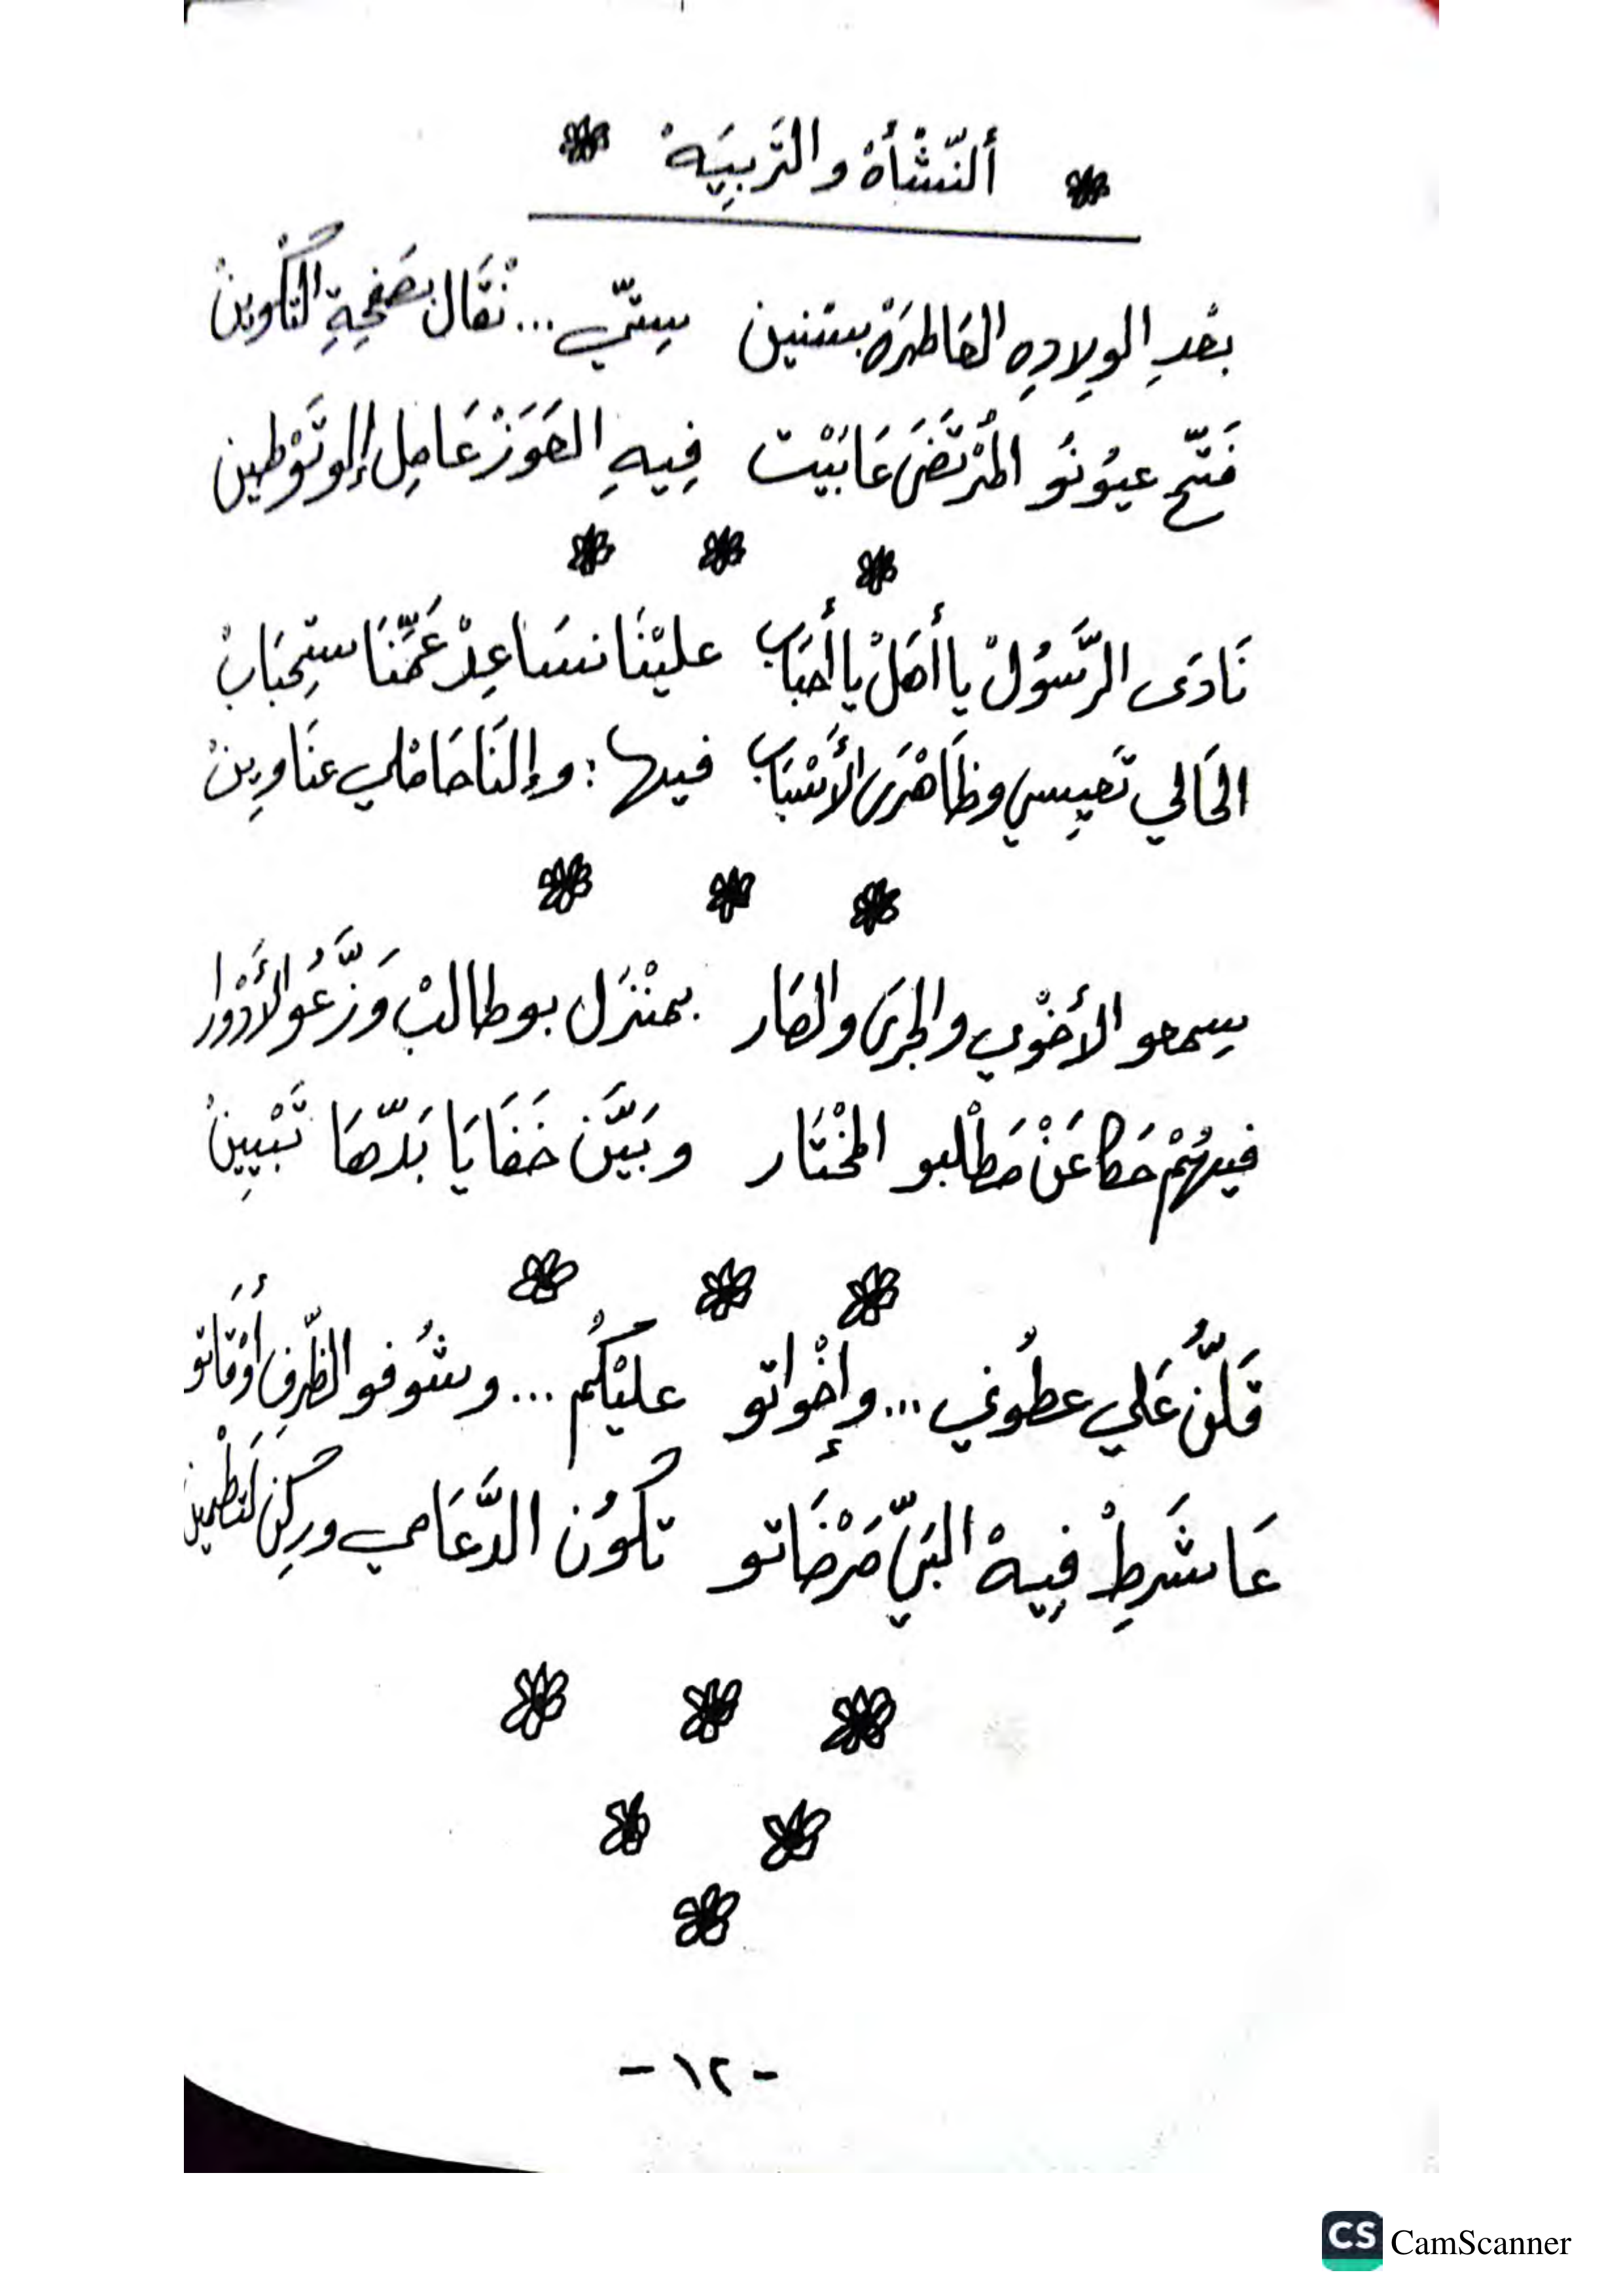 ألنّشْأةْ والتَربيَةْ
بعْدِ الوِلادِهِ العَاطِرَةْ بسنين سِتّي ... نْقَال بصَفحِةِ التكْوينْ
فَتّح عيُونُو المُرْتَضَى عَا بَيْت فِيهِ العَوَزْ عَامِل إلو تَوْطين
نَادَى الرَّسُولْ يا أهَلْ يا أحْبَاب عليْنَا نسَاعِدْ عَمِّنَا ستِحبَابْ
الحَالي تعِيسي وظَاهْرَى الأسْبَاب فيها : وإلنَا حَامْلي عنَاوِينْ
سِمعو الأخْوي والجرَى والصَار بمنْزَل بو طالبْ وَزَّعُو الأدْوَار
فيهُمْ حَكا عَنْ مَطْلبو المخْتَار وبَيَّن خَفَايَا بَدّهَا تَبْيينْ
قَلّنْ عَلي عطُوني ... وإخْواتو عليْكُم ... وشُوفو الظّرفِ أوْقَاتو
عَا شَرطِ فِيهْ النبيّ مَرْضَاتو تكوُن الدَّعَامي وركِن لَتطْمين
- ١٢ -
CS CamScanner